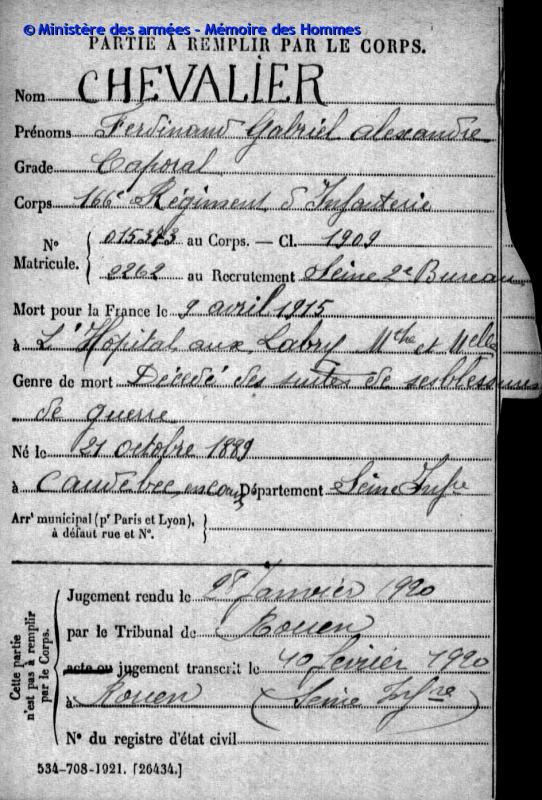 © Ministère des armées - Mémoire des Hommes
PARTIE À REMPLIR PAR LE CORPS.
Nom CHEVALIER
Prénoms Ferdinand Gabriel alexandre
Grade Caporal
Corps 166e Régiment d'Infanterie
N° Matricule. { 015373 au Corps. — Cl. 1909
0262 au Recrutement Seine 2e Bureau
Mort pour la France le 9 avril 1915
à L'Hôpital aux Labry Mthe et Melle
Genre de mort Décédé des suites de ses blessures
de guerre
Né le 21 octobre 1889
à Caudebec en caux Département Seine Infre
Arrt municipal (pr Paris et Lyon), à défaut rue et N°. }
Cette partie n'est pas à remplir par le Corps.
Jugement rendu le 28 Janvier 1920
par le Tribunal de Rouen
acte ou jugement transcrit le 10 février 1920
à Rouen (Seine Infre)
N° du registre d'état civil
534-708-1921. [26434.]